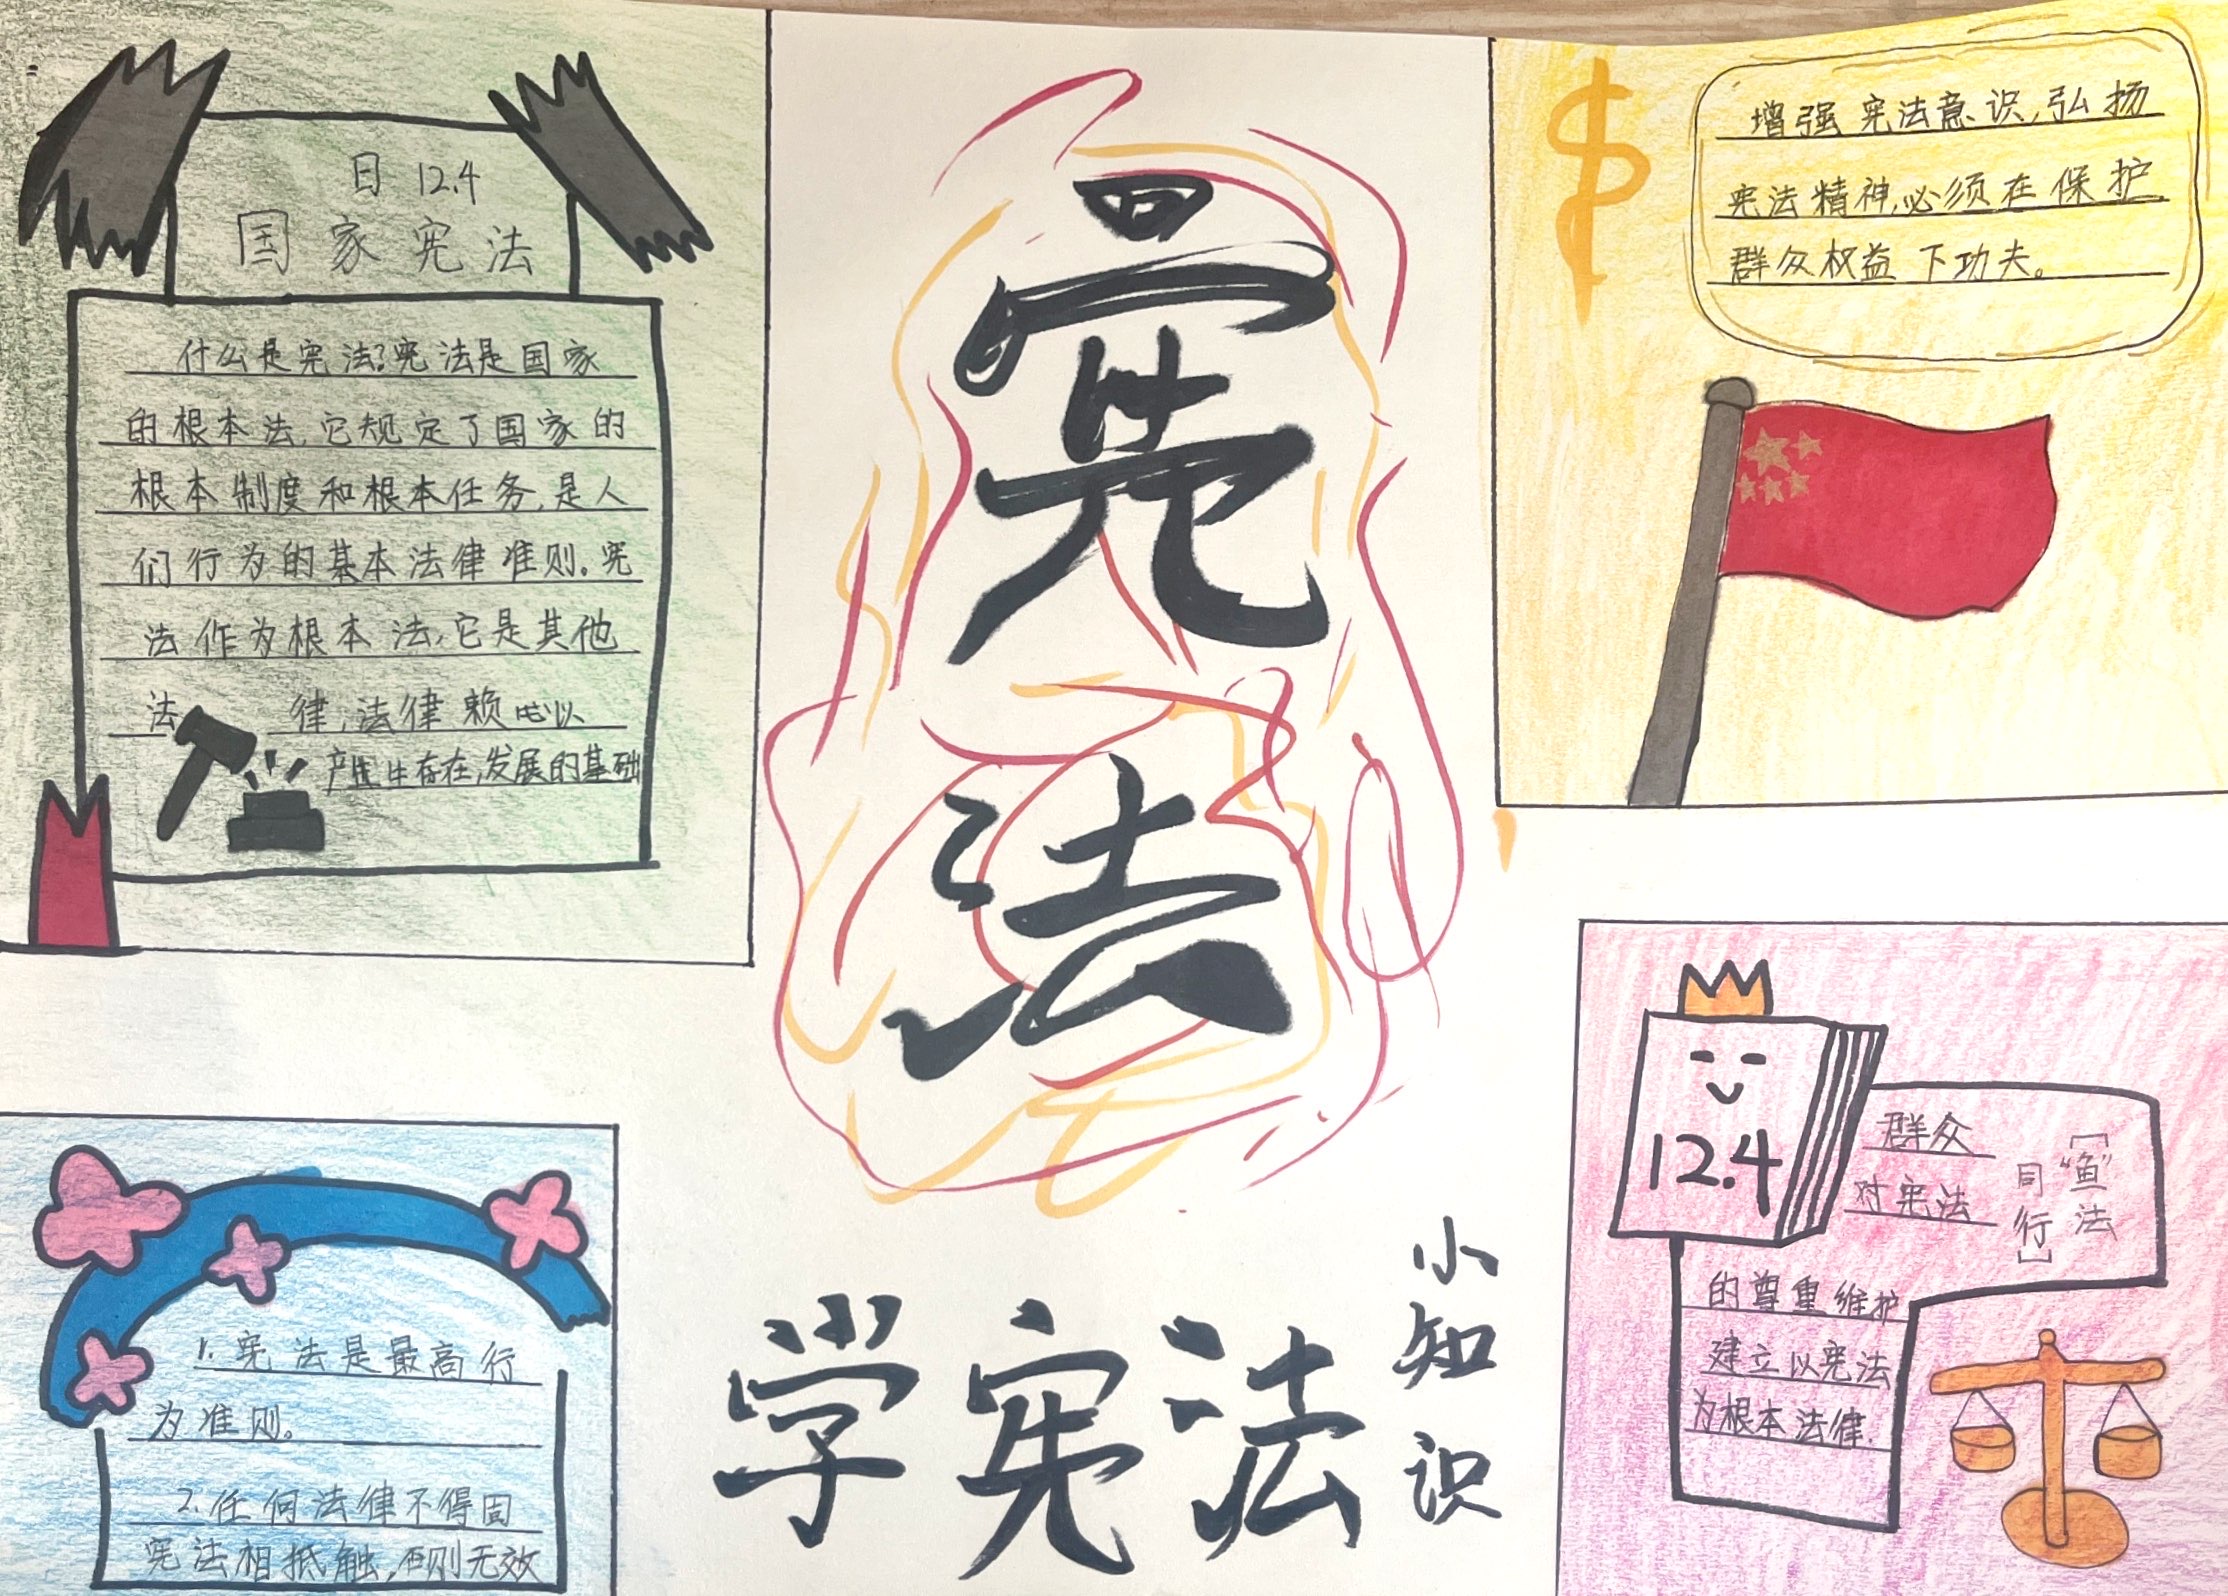 日 12.4
国家宪法
什么是宪法?宪法是国家
的根本法,它规定了国家的
根本制度和根本任务,是人
们行为的基本法律准则。宪
法作为根本法,它是其他
法律,法律赖以
产生存在,发展的基础
宪
法
增强宪法意识,弘扬
宪法精神,必须在保护
群众权益下功夫。
1.宪法是最高行
为准则。
2.任何法律不得固
宪法相抵触,否则无效
学宪法
小知识
12.4
["鱼"法
同行]
群众
对宪法
的尊重维护
建立以宪法
为根本法律.